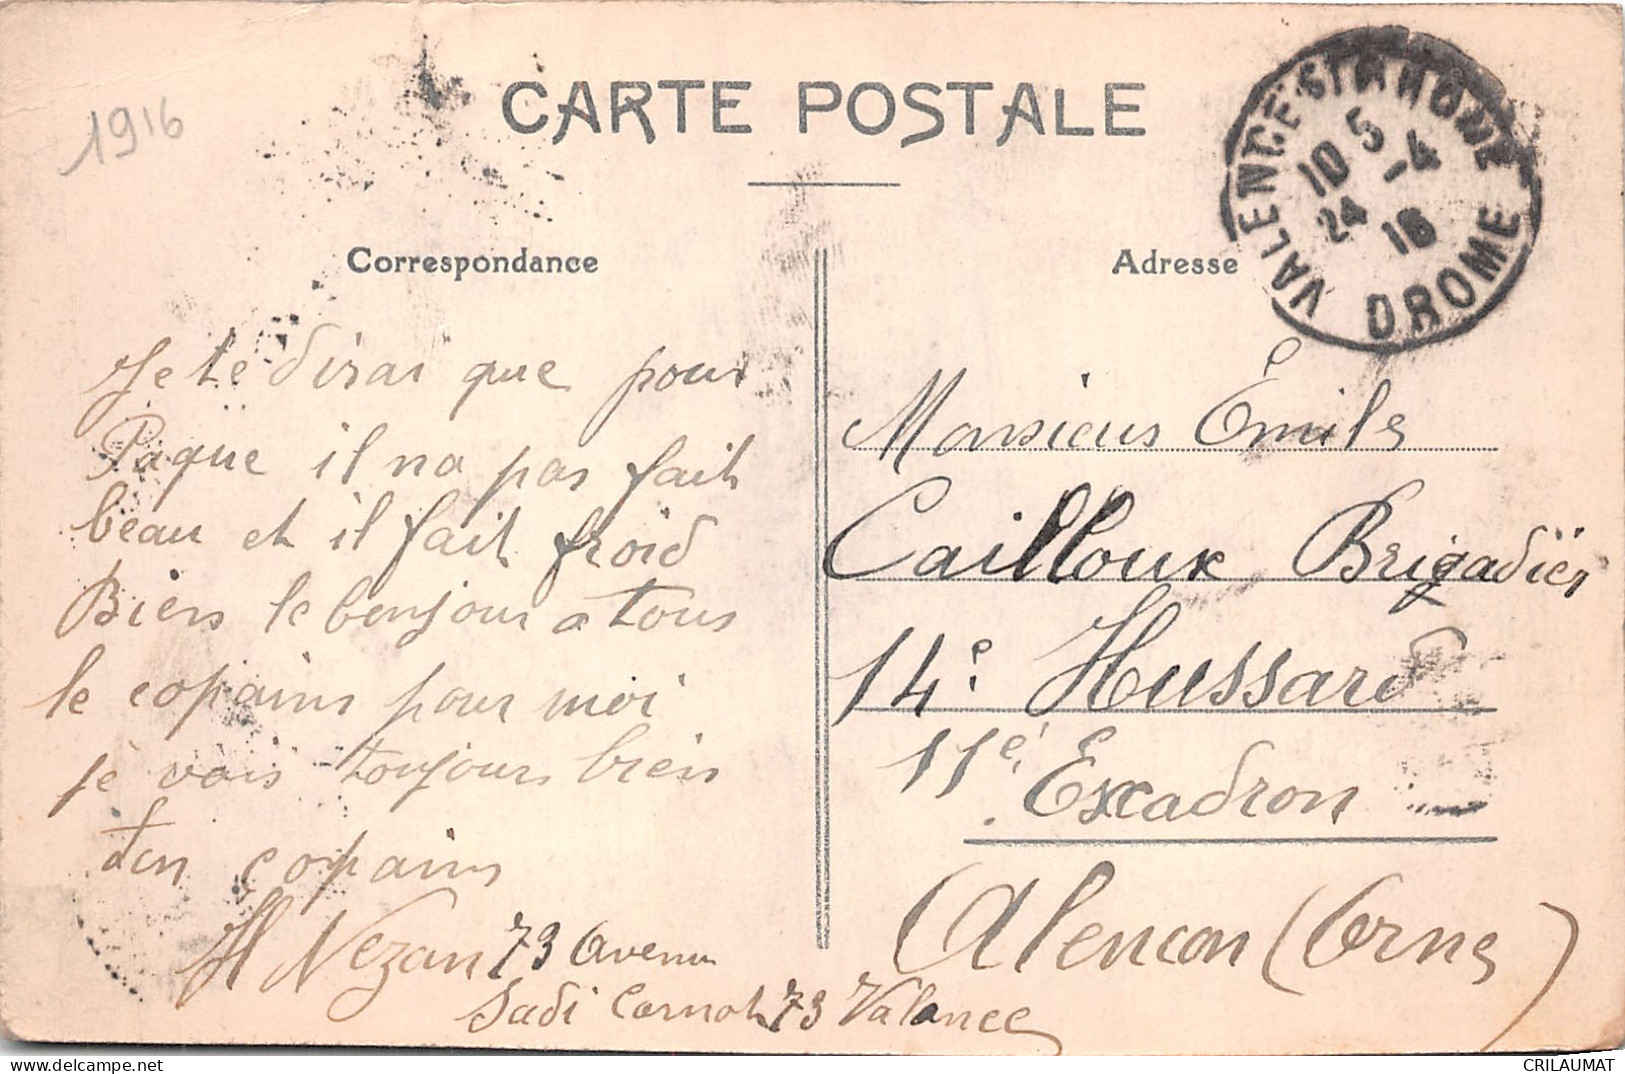 1916
CARTE POSTALE
VALENCE S/ RHONE
10 5
24 -4
16
DROME
Correspondance
Adresse
Je te dirai que pour
Paque il na pas fait
beau et il fait froid
Bien le bonjour a tous
le copains pour moi
je vais toujours bien
ton copains
H Nezan 73 Avenu
Sadi Carnot 73 Valance
Monsieur Émile
Cailloux Brigadier
14e Hussard
11e
Excadron
Alencon (Orne)
delcampe.net
CRILAUMAT